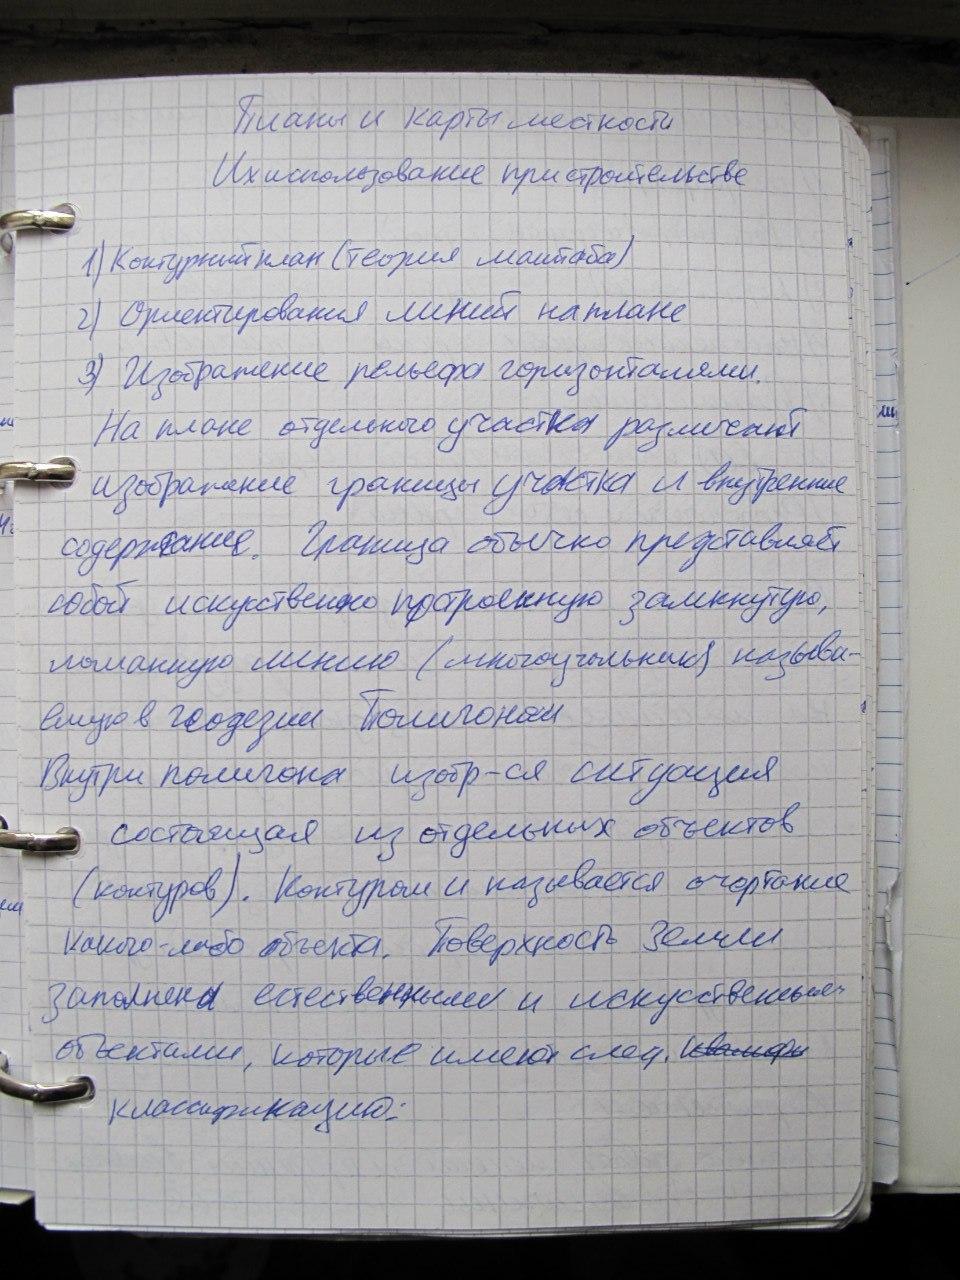 Планы и карты местности
Их использование при строительстве
1) Контурный план (теория масштаба)
2) Ориентирования линий на плане
3) Изображение рельефа горизонталями.
На плане отдельного участка различают
изображение границы участка и внутренние
содержание. Граница обычно представляет
собой искуственно построенную замкнутую,
ломанную линию (многоугольник) называ-
емую в геодезии Полигоном
Внутри полигона изобр-ся ситуация
состаящая из отдельных объектов
(контуров). Контуром и называется очертание
какого-либо объекта. Поверхность Земли
заполнена естественными и искусственным
объектами, которые имеют след.
классификацию: